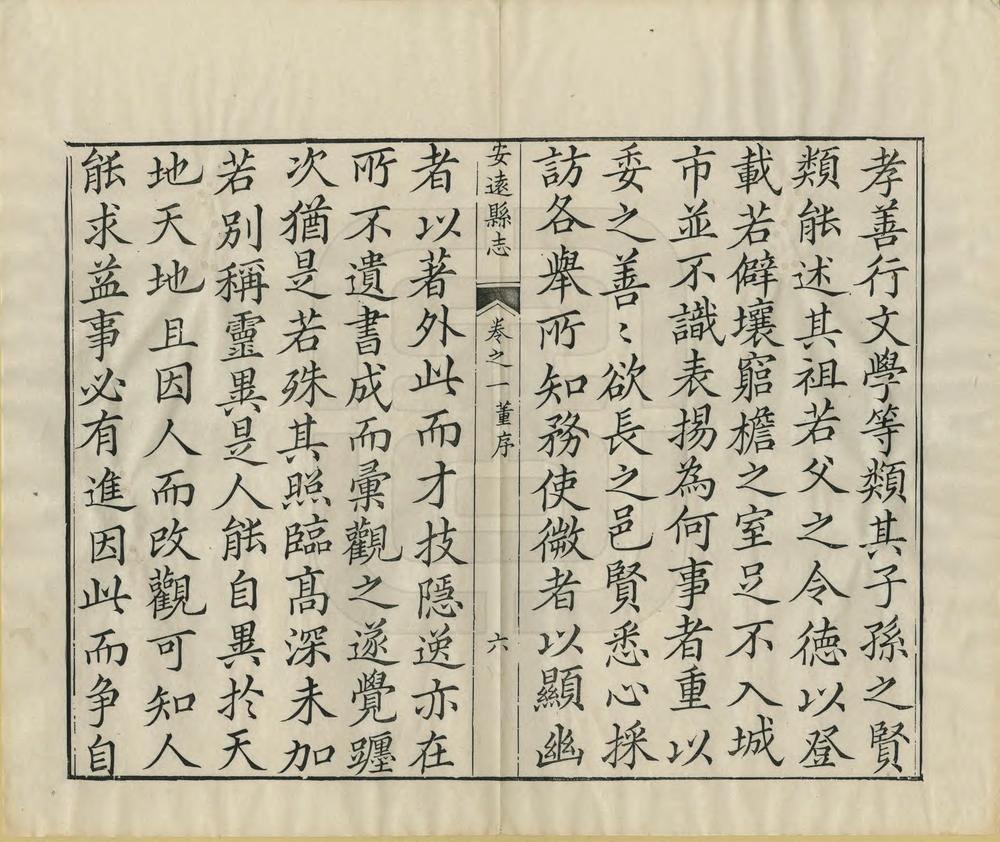 孝善行文學等類其子孫之賢
類能述其祖若父之令徳以登
載若僻壤窮檐之室足不入城
市並不識表揚為何事者重以
委之善〻欲長之邑賢悉心採
訪各舉所知務使微者以顯幽
安遠縣志
卷之一董序
六
者以著外此而才技隱逸亦在
所不遺書成而彙觀之遂覺躔
次猶是若殊其照臨高深未加
若別稱靈異是人能自異於天
地天地且因人而改觀可知人
能求益事必有進因此而争自